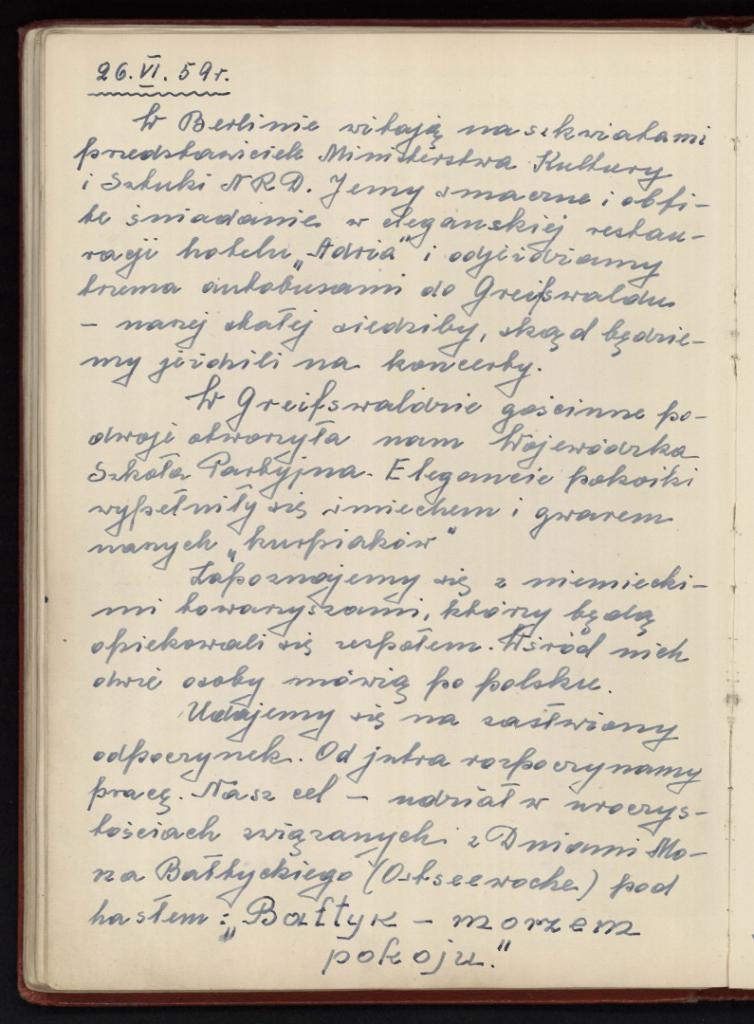 26.VI.59r.
W Berlinie witają nas z kwiatami
przedstawiciele Ministerstwa Kultury
i Sztuki NRD. Jemy smaczne i obfi-
te śniadanie w eleganskiej restau-
racji hotelu „Adria” i odjeżdżamy
trzema autobusami do Greifswaldu
– naszej stałej siedziby, skąd będzie-
my jeździli na koncerty.
W Greifswaldzie gościnne po-
dwoje otworzyła nam Wojewódzka
Szkoła Partyjna. Eleganckie pokoiki
wypełniły się śmiechem i gwarem
naszych „kurpiaków”
Zapoznajemy się z niemiecki-
mi towarzyszami, którzy będą
opiekowali się zespołem. Wśród nich
dwie osoby mówią po polsku.
Udajemy się na zasłużony
odpoczynek. Od jutra rozpoczynamy
pracę. Nasz cel – udział w uroczys-
tościach związanych z Dniami Mo-
rza Bałtyckiego (Ostseewoche) pod
hasłem: „Bałtyk – morzem
pokoju.”